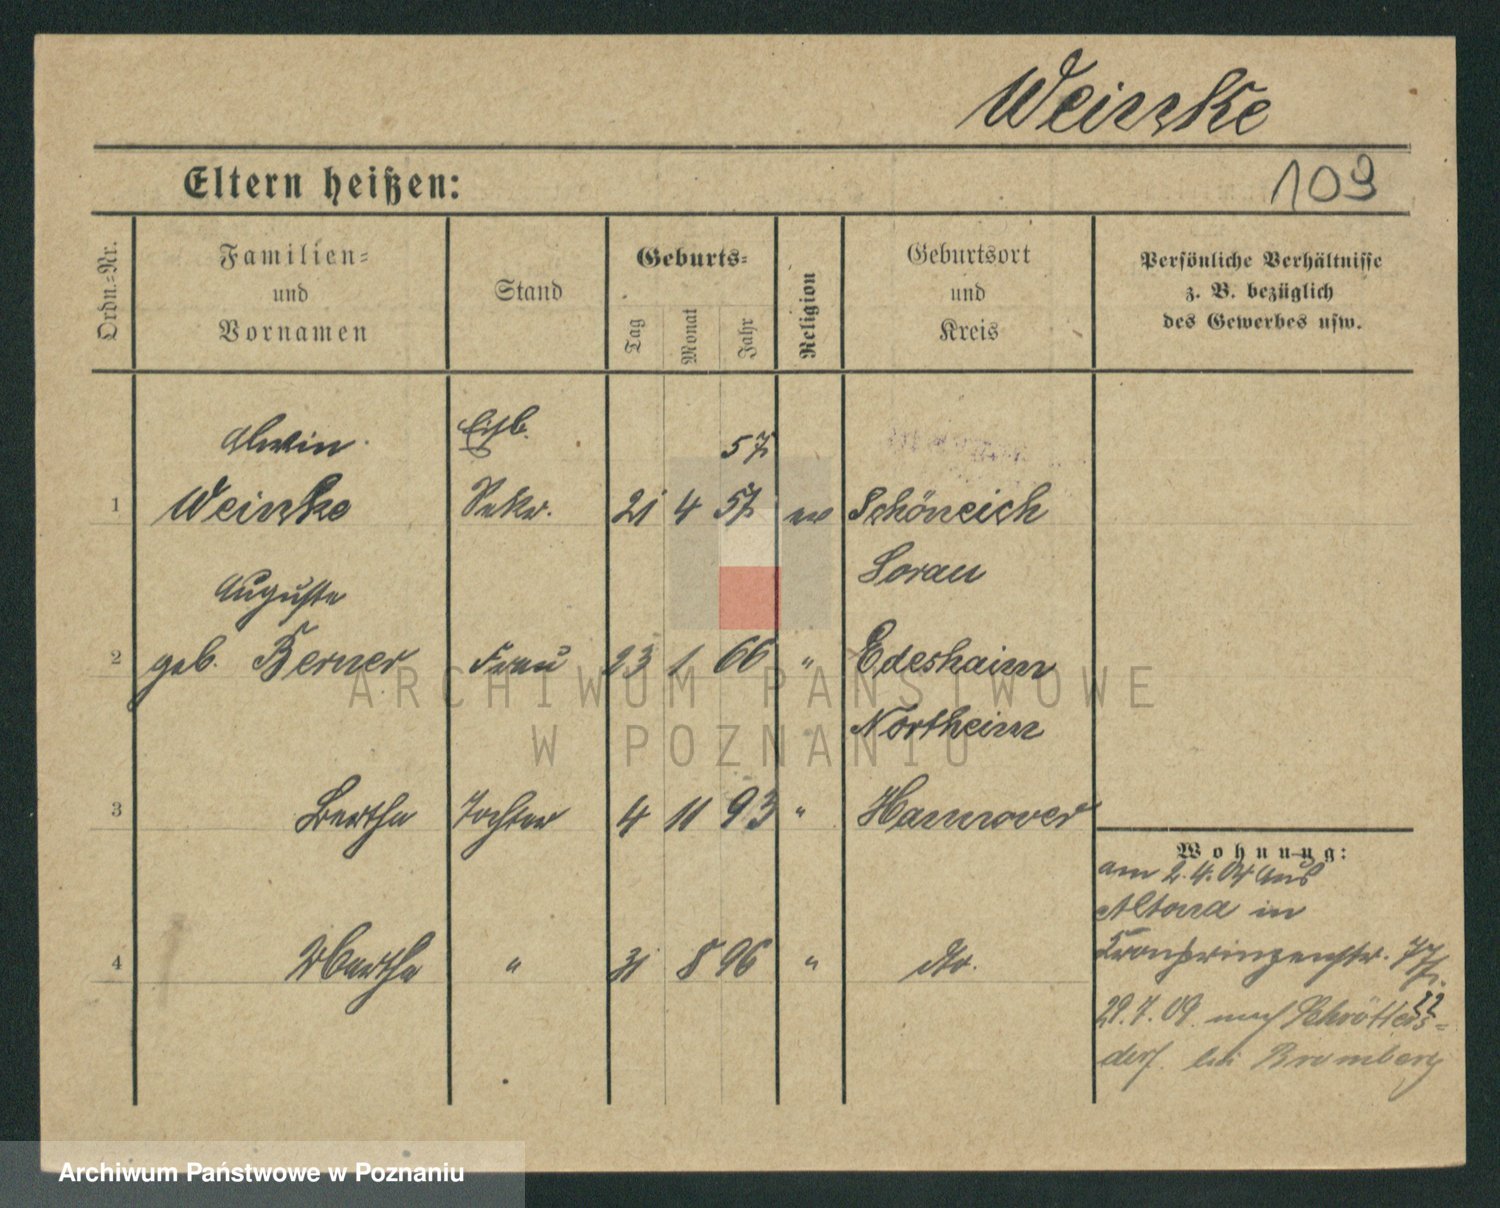 Weinzke
Eltern heißen:
109
Ordn.-Nr.
Familien-
und
Vornamen
Stand
Geburts-
Tag
Monat
Jahr
Religion
Geburtsort
und
Kreis
Persönliche Verhältnisse
z. B. bezüglich
des Gewerbes usw.
Alwin Eisb. 57
1 Weinzke Sekr. 21 4 57 ev Schöneich
Sorau
Auguste
2 geb. Berner Frau 23 1 66 " Edesheim
Northeim
3 Bertha Tochter 4 11 93 " Hannover
4 Martha " 31 8 96 " dto.
Wohnung:
am 2.4.04 aus
Altona in
Kronprinzenstr. 77
29.7.09. nach Schrötters-
dorf bei Bromberg
ARCHIWUM PAŃSTWOWE
W POZNANIU
Archiwum Państwowe w Poznaniu